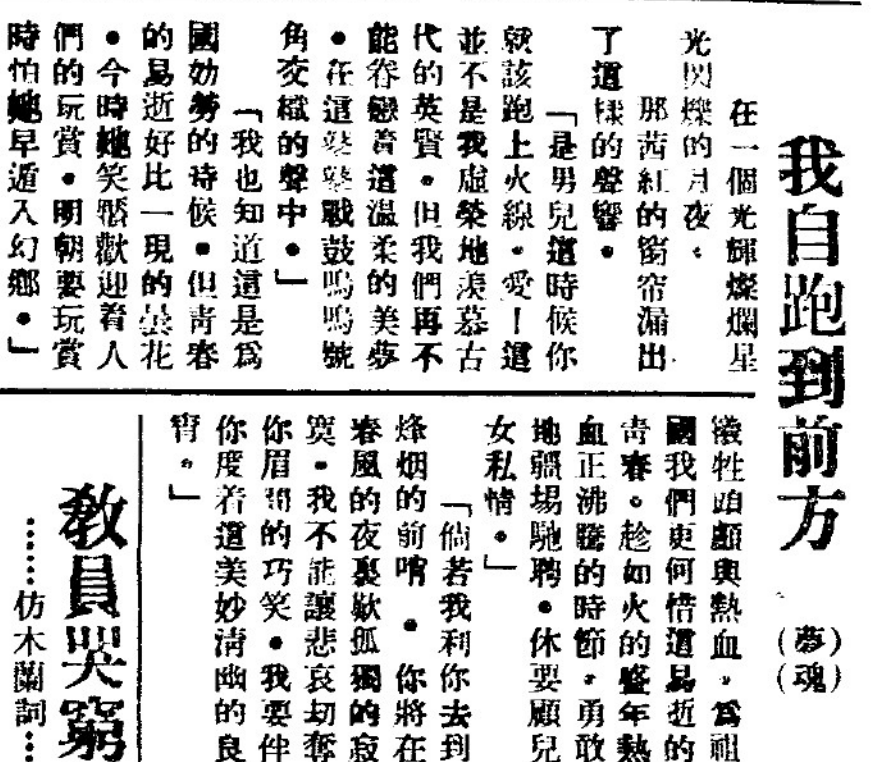 我自跑到前方
(夢)
(魂)
在一個光輝燦爛星
光閃爍的月夜。
那茜紅的窗帘漏出
了這樣的聲響。
「是男兒這時候你
就該跑上火線。愛!這
並不是我虛榮地羨慕古
代的英賢。但我們再不
能眷戀着這溫柔的美夢
。在這鼕鼕戰鼓嗚嗚號
角交織的聲中。」
「我也知道這是爲
國効勞的時候。但靑春
的易逝好比一現的曇花
。今時她笑靨歡迎着人
們的玩賞。明朝要玩賞
時怕她早遁入幻鄉。」
犧牲頭顱與熱血,爲祖
國我們更何惜這易逝的
靑春。趁如火的盛年熱
血正沸騰的時節,勇敢
地疆場馳聘。休要顧兒
女私情。」
「倘若我利你去到
烽烟的前哨。你將在
春風的夜裏歎孤獨的寂
寞。我不能讓悲哀刧奪
你眉間的巧笑。我要伴
你度着這美妙淸幽的良
宵。」
敎員哭窮
……仿木蘭詞…